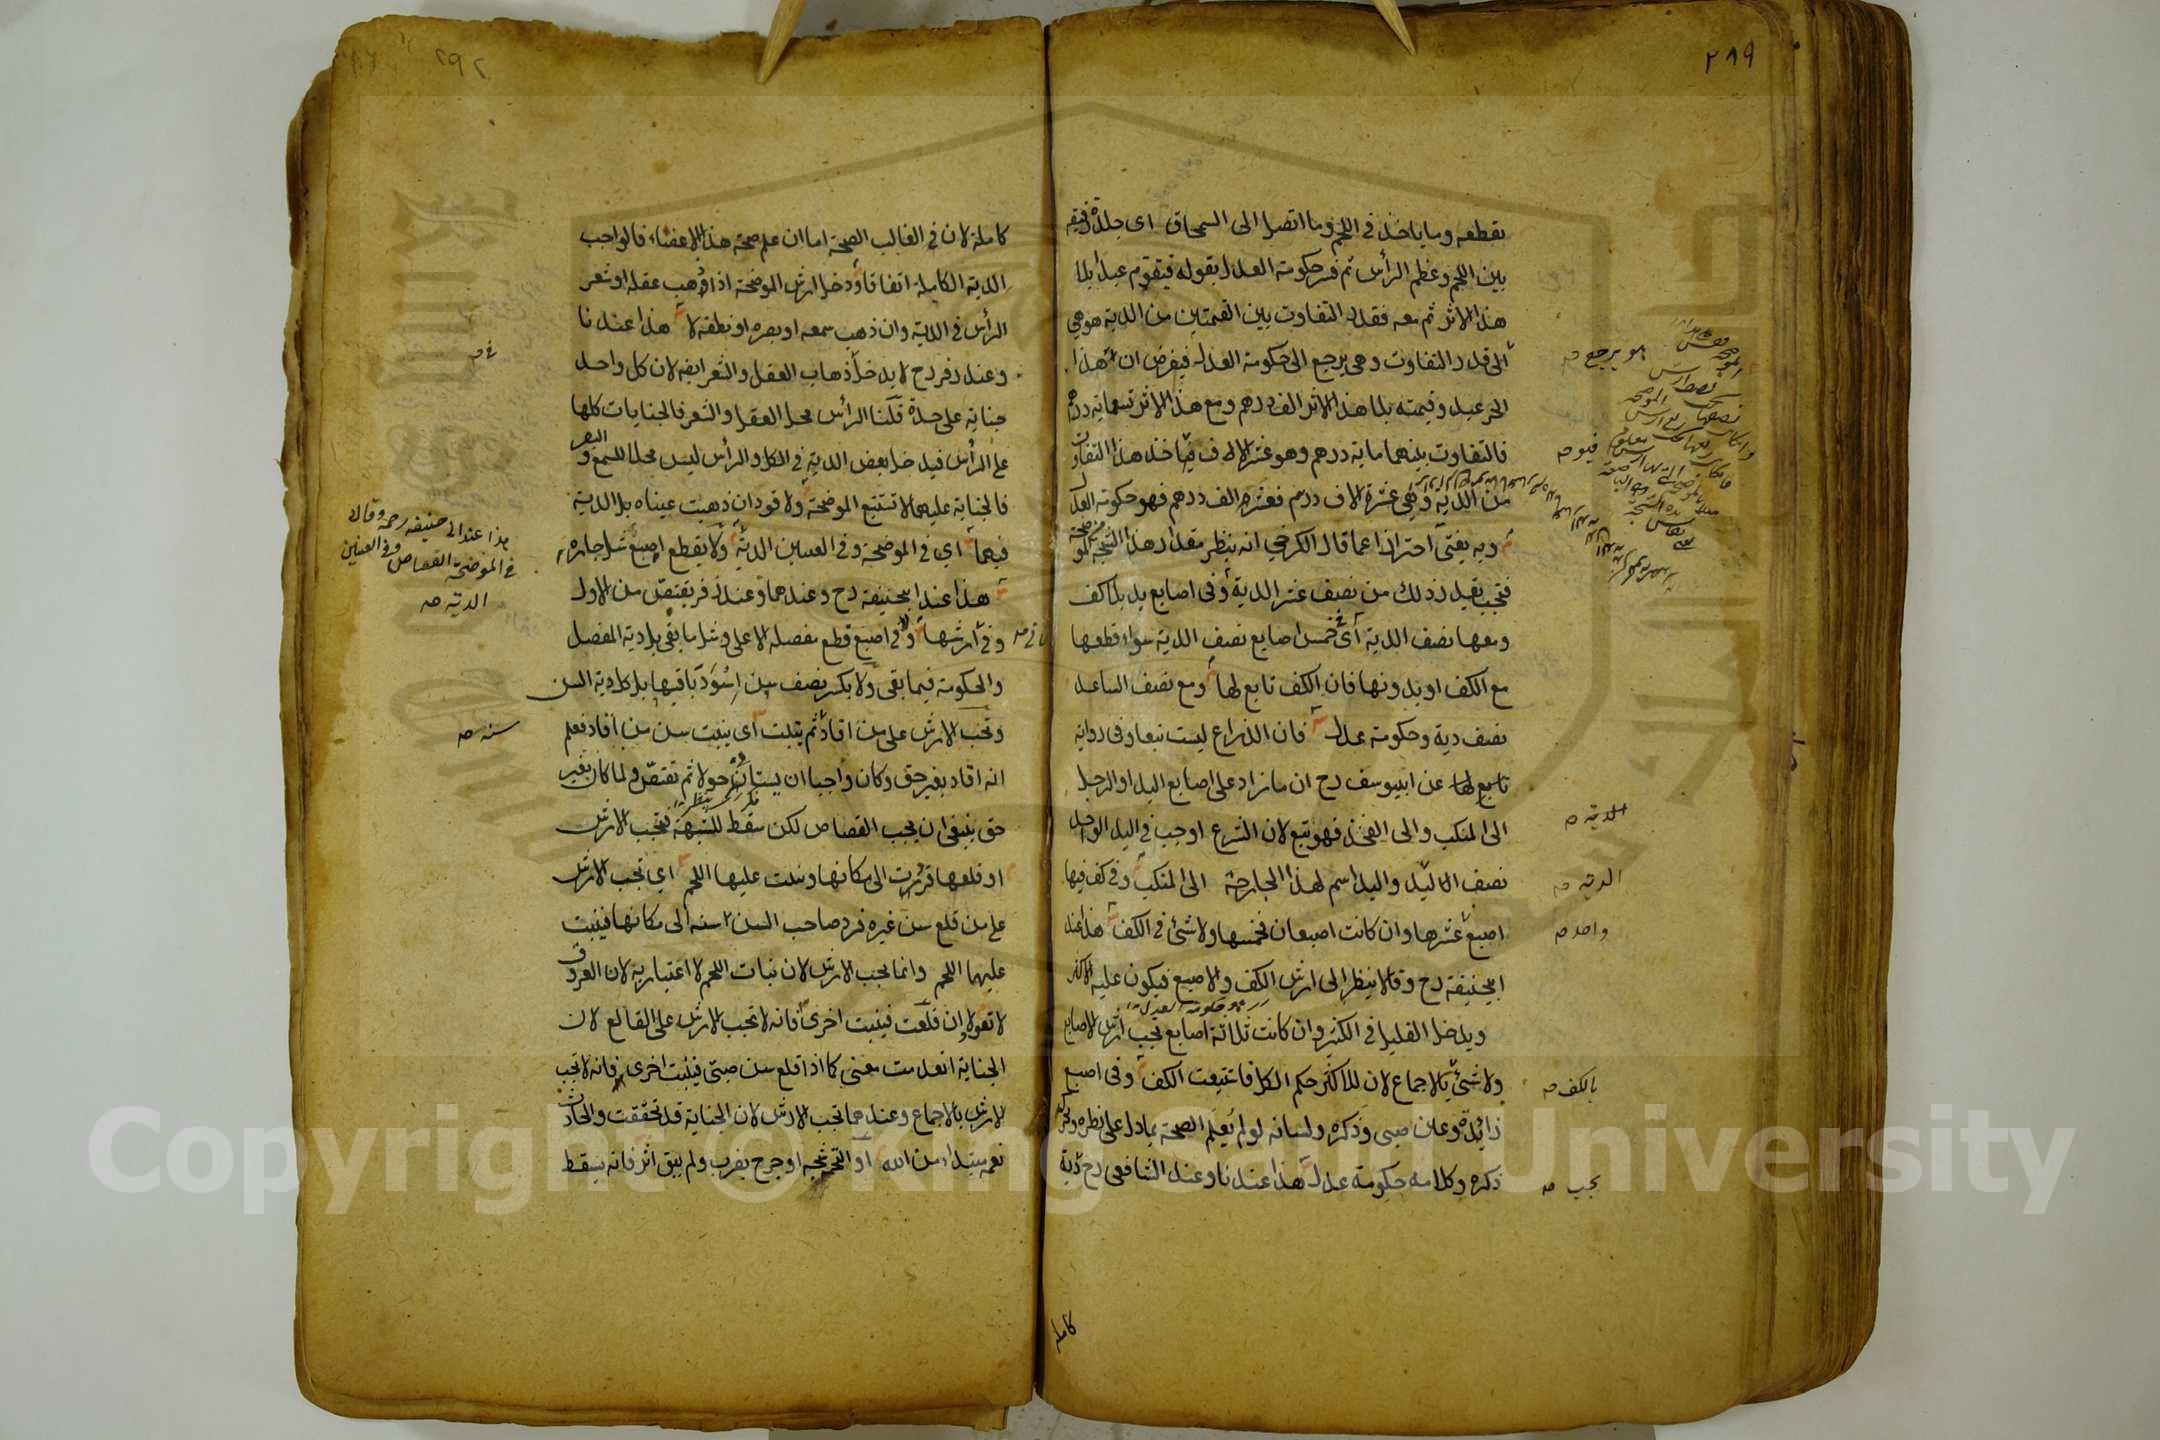 ٢٨٩
تقطعه وما ياخذ في اللحم وما اتصل الى السمحاق اى جلدة رقيقه
بين اللحم وعظم الرأس ثم فسر حكومة العدل بقوله فيقوم عبدا بلا
هذا الاثر ثم معه فقدر التفاوت بين القيمتين من الدية هو هي
اى قدر التفاوت وهي يرجع الى حكومة العدل فيفرض ان هذا
الحر عبد وقيمته بلا هذا الاثر الف درهم ومع هذا الاثر تسعماية درهم
فالتفاوت بينهما ماية درهم وهو عشر الالف فياخذ هذا التفاوت
من الدية وهي عشرة الاف درهم فعشره الف درهم فهو حكومة العدل
وبه يفتى احترازا عما قال الكرخي انه ينظر مقدار هذا الشجة من الموضحة
فتجب بقدر ذلك من نصف عشر الدية وفى اصابع يد بلا كف
ومعها نصف الدية اى في خمس اصابع نصف الدية سواء قطعها
مع الكف او بدونها فان الكف تابع لها ومع نصف الساعد
نصف دية وحكومة عدل فان الذراع ليست تبعا وفى رواية
تابع لها عن ابيوسف رح ان ما زاد على اصابع اليد او الرجل
الى المنكب والى الفخذ فهو تبع لان الشرع اوجب في اليد الواحد
نصف الدية واليد اسم لهذا الجارحة الى المنكب وفى كف فيها
اصبع عشرها وان كانت اصبعان فخمسها ولا شئ في الكف هذا عند
ابيحنيفة رح وقالا ينظر الى ارش الكف والاصبع فيكون عليه الاكثر
ويدخل القليل في الكثير وان كانت ثلاثة اصابع تجب ارش الاصابع
ولا شئ بالاجماع لان للاكثر حكم الكل فاتبعت الكف وفى اصبع
زائدة وعين صبى وذكره ولسانه لو لم يعلم الصحة بما دل على نظره وتحرك
ذكره وكلامه حكومة عدل هذا عندنا وعند الشافعى رح دية
هو يرجع صه
فيؤ صه
الدية صه
الدية صه
واحد صه
بالكف صه
يجب صه
كاملة
٢٩٢
كاملة لان في الغالب الصحة اما ان علم صحة هذا الاعضاء فالواجب
الدية الكاملة اتفاقا ودخل ارش الموضحة اذا ذهب عقله او شعر
الرأس في الدية وان ذهب سمعه او بصره او نطقه لا هذا عندنا
وعند زفر رح لا يدخل ذهاب العقل والشعر ايضه لان كل واحد
جناية على حدة قلنا الرأس محل العقل والشعر فالجنايات كلها
على الرأس فيدخل بعض الدية في الكل والرأس ليس محلا للسمع والبصر
فالجناية عليهما لا تستتبع الموضحة ولا قود ان ذهبت عيناه بل الدية
فيهما اي في الموضحة وفى العينين الدية ولا يقطع اصبع شل جاره
هذا عند ابيحنيفة رح وعندهما وعند زفر يقتص من الاول
وفى ارشها ولا في اصبع قطع مفصله الاعلى وشل ما بقى بل دية المفصل
والحكومة فيما بقى ولا بكسر نصف سن اسود باقيها بل كل دية السن
وتجب الارش على من اقاد ثم ينبت اى ينبت سن من اقاد فعلم
انه اقاد بغير حق وكان واجبا ان يستانى حولا ثم تقتص ولما كان بغير
حق ينبغى ان يجب القصاص لكن سقط للشبهة فتجب الارش
او قلعها فردت الى مكانها ونبت عليها اللحم اي تجب الارش
على من قلع سن غيره فرد صاحب السن سنه الى مكانها فينبت
عليها اللحم وانما يجب الارش لان نبات اللحم لا اعتبار به لان العروق
لا تعود لا ان قلعت فينبت اخرى فانه لا تجب الارش على القالع لان
الجناية انعدمت معنى كما اذا قلع سن صبى فينبت اخرى فانه لا تجب
الارش بالاجماع وعندهما تجب الارش لان الجناية قد تحققت والحادث
نعمه مبتداء من الله او التحم شجه او جرح بضرب ولم يبق اثر فانه يسقط
هذا عند ابى حنيفه رحمه وقالا
في الموضحة القصاص وفى العينين
الدية صه
سنه صه